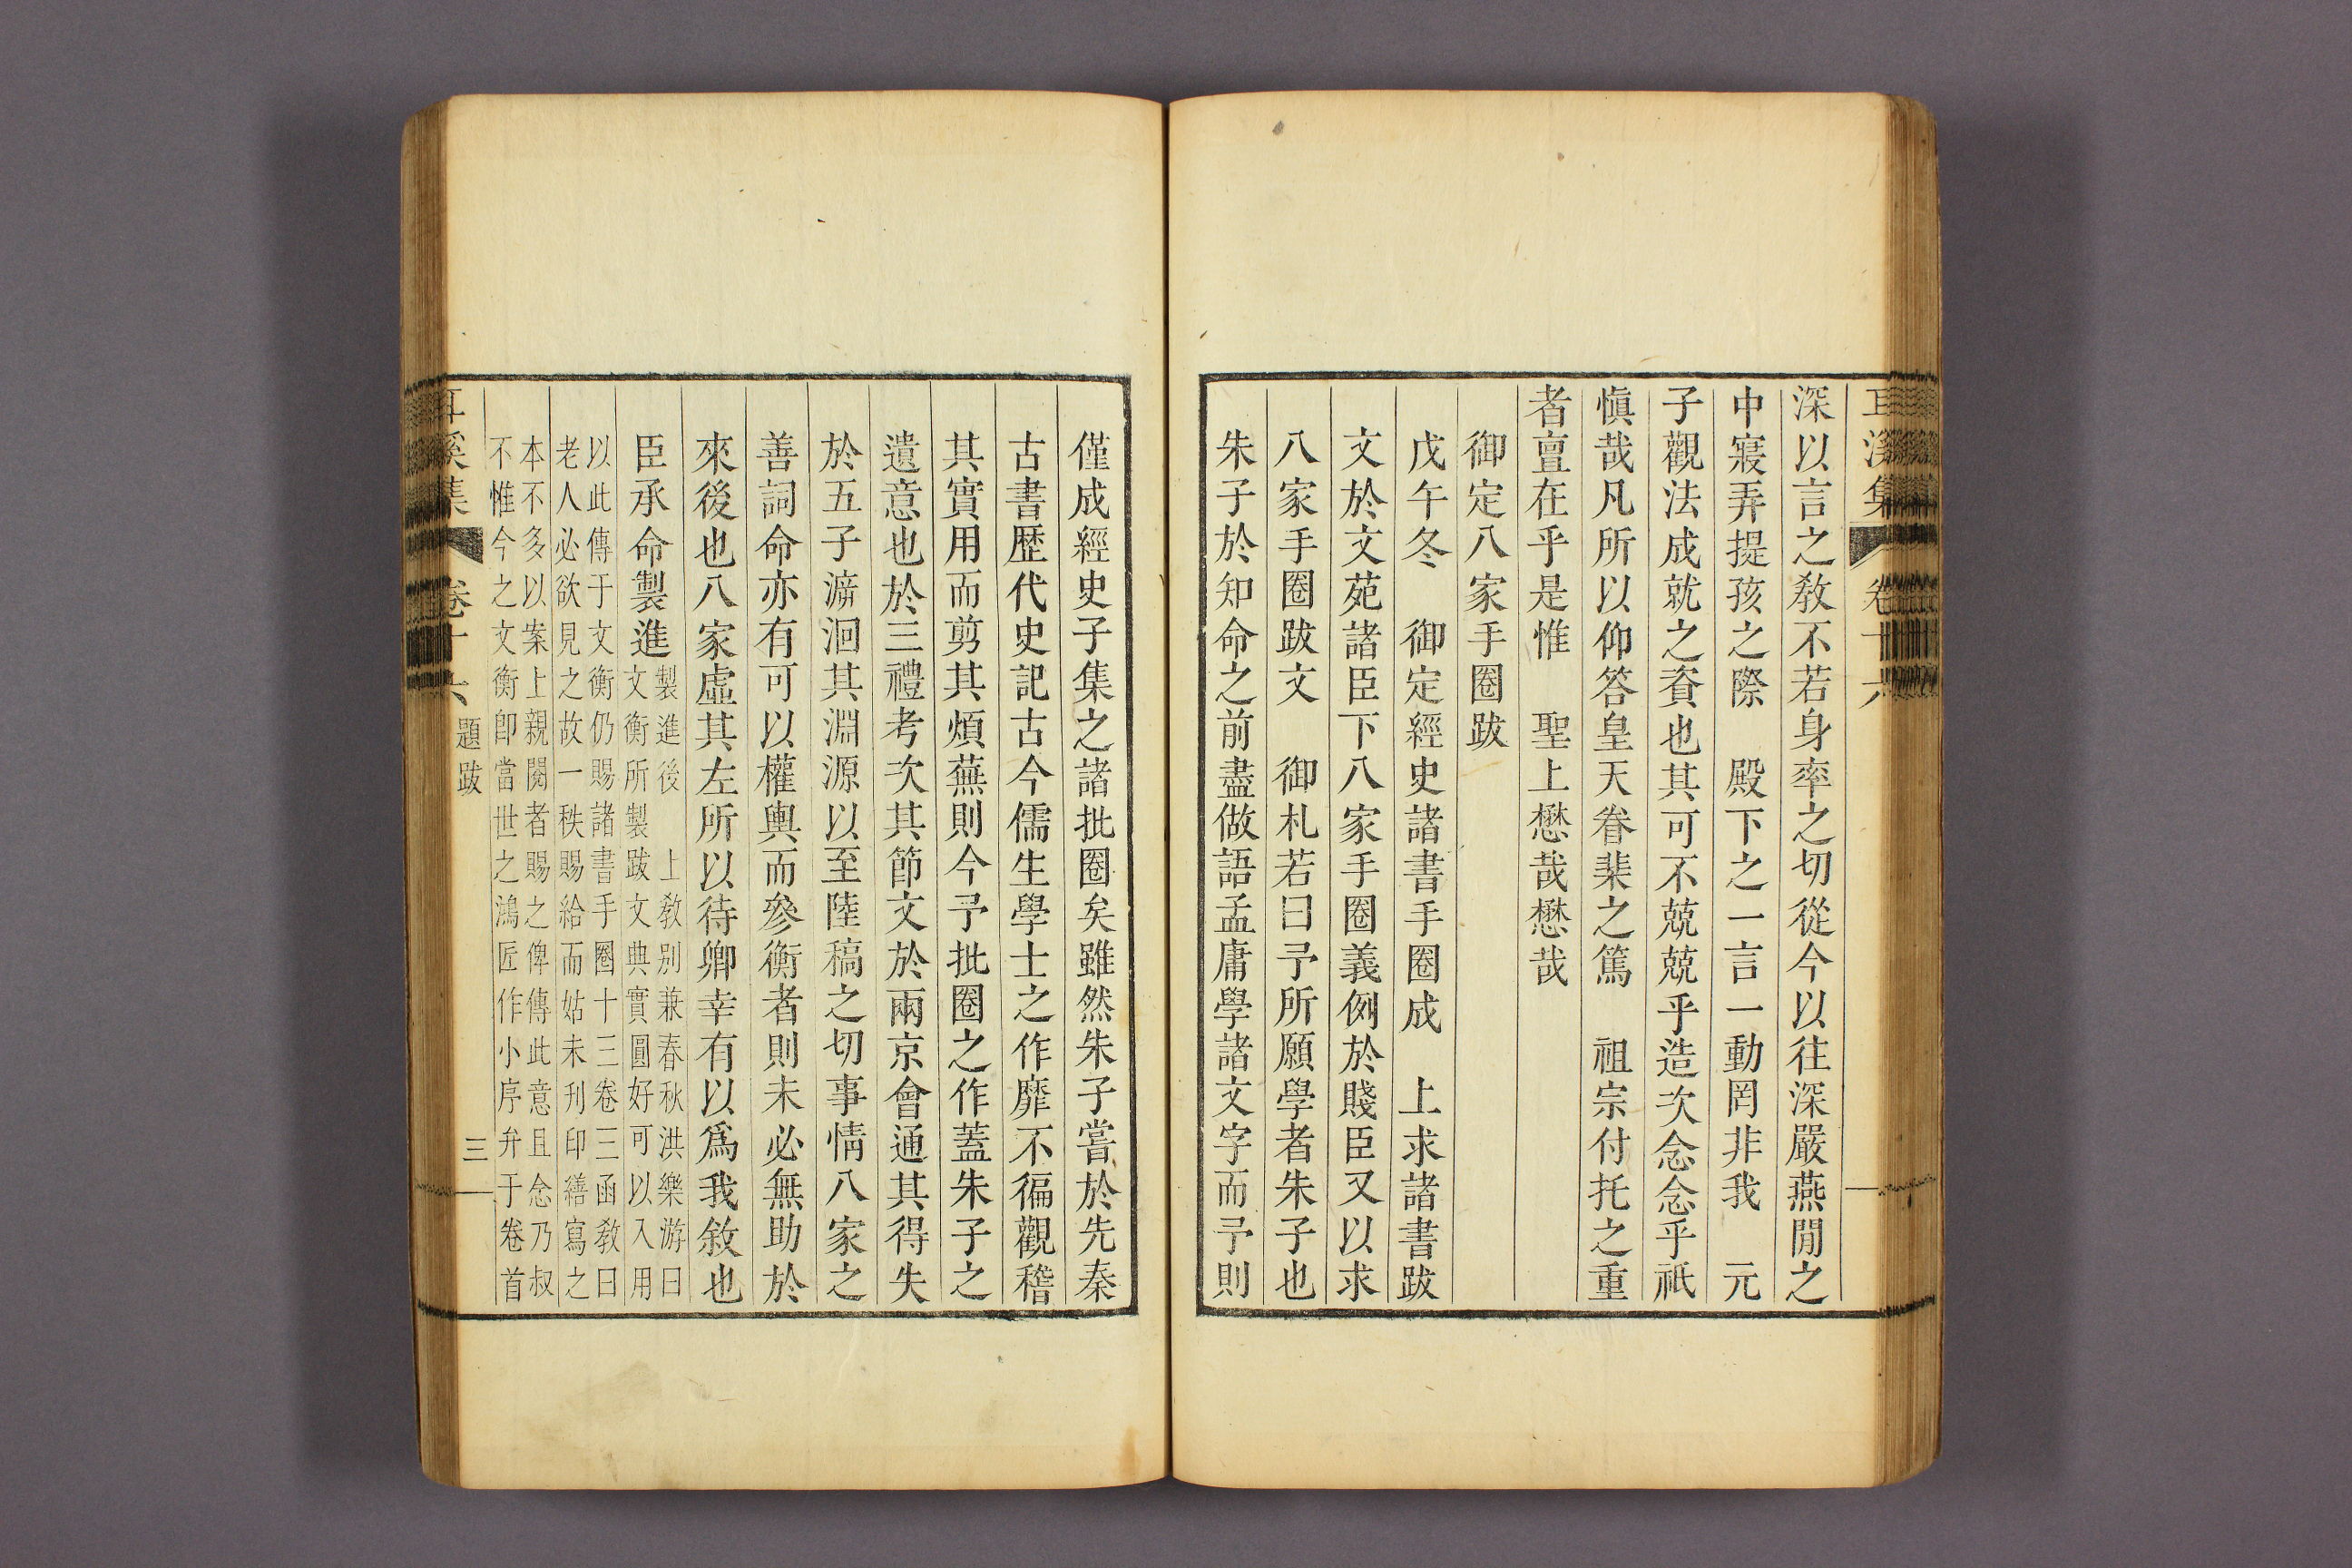 耳溪集 卷十六
深以言之敎不若身率之切從今以往深嚴燕閒之
中寢弄提孩之際 殿下之一言一動罔非我 元
子觀法成就之資也其可不兢兢乎造次念念乎祇
愼哉凡所以仰答皇天眷棐之篤 祖宗付托之重
者亶在乎是惟 聖上懋哉懋哉
御定八家手圈跋
戊午冬 御定經史諸書手圈成 上求諸書跋
文於文苑諸臣下八家手圈義例於賤臣又以求
八家手圈跋文 御札若曰予所願學者朱子也
朱子於知命之前盡做語孟庸學諸文字而予則
僅成經史子集之諸批圈矣雖然朱子嘗於先秦
古書歷代史記古今儒生學士之作靡不徧觀稽
其實用而剪其煩蕪則今予批圈之作蓋朱子之
遺意也於三禮考次其節文於兩京會通其得失
於五子㴑洄其淵源以至陸稿之切事情八家之
善詞命亦有可以權輿而參衡者則未必無助於
來後也八家虛其左所以待卿幸有以爲我敘也
臣承命製進製進後 上敎別兼春秋洪樂游曰
文衡所製跋文典實圓好可以入用
以此傳于文衡仍賜諸書手圈十三卷三函敎曰
老人必欲見之故一秩賜給而姑未刊印繕寫之
本不多以案上親閱者賜之俾傳此意且念乃叔
不惟今之文衡卽當世之鴻匠作小序弁于卷首
耳溪集 卷十六 題跋 三